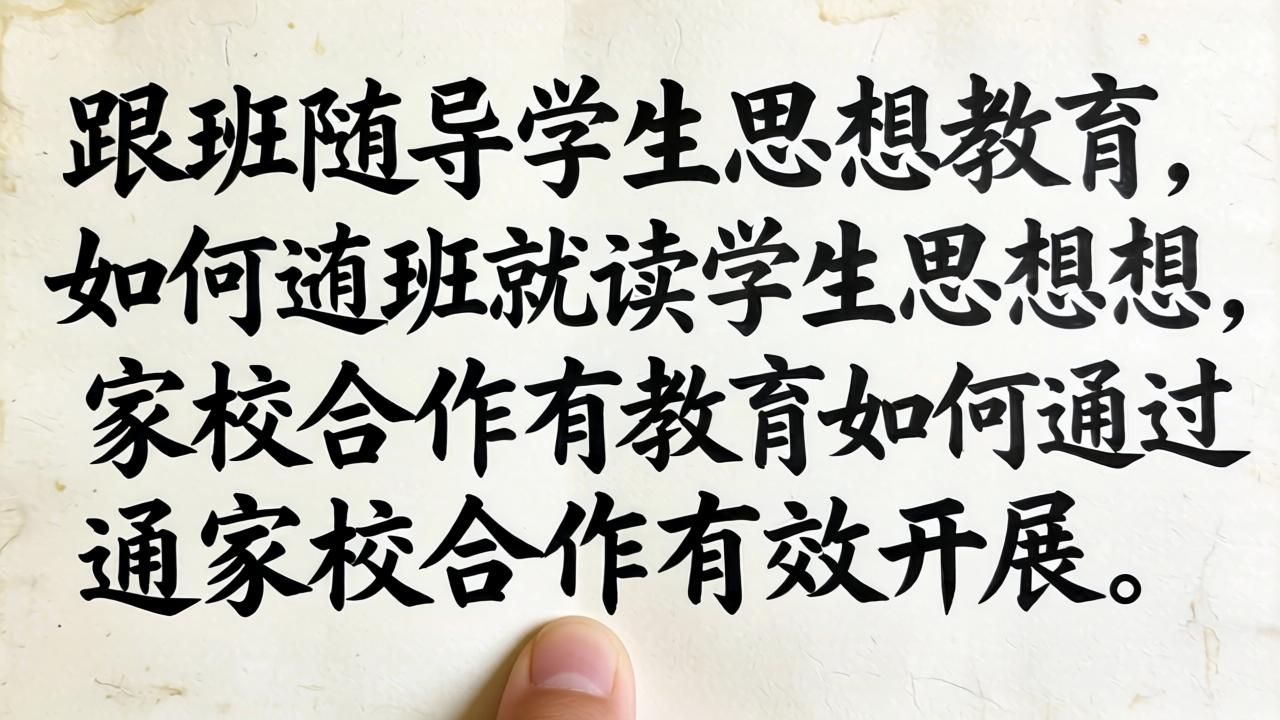 跟班随导学生思想教育，
如何班就读学生思想想，
家校合作有教育如何通过
通家校合作有效开展。